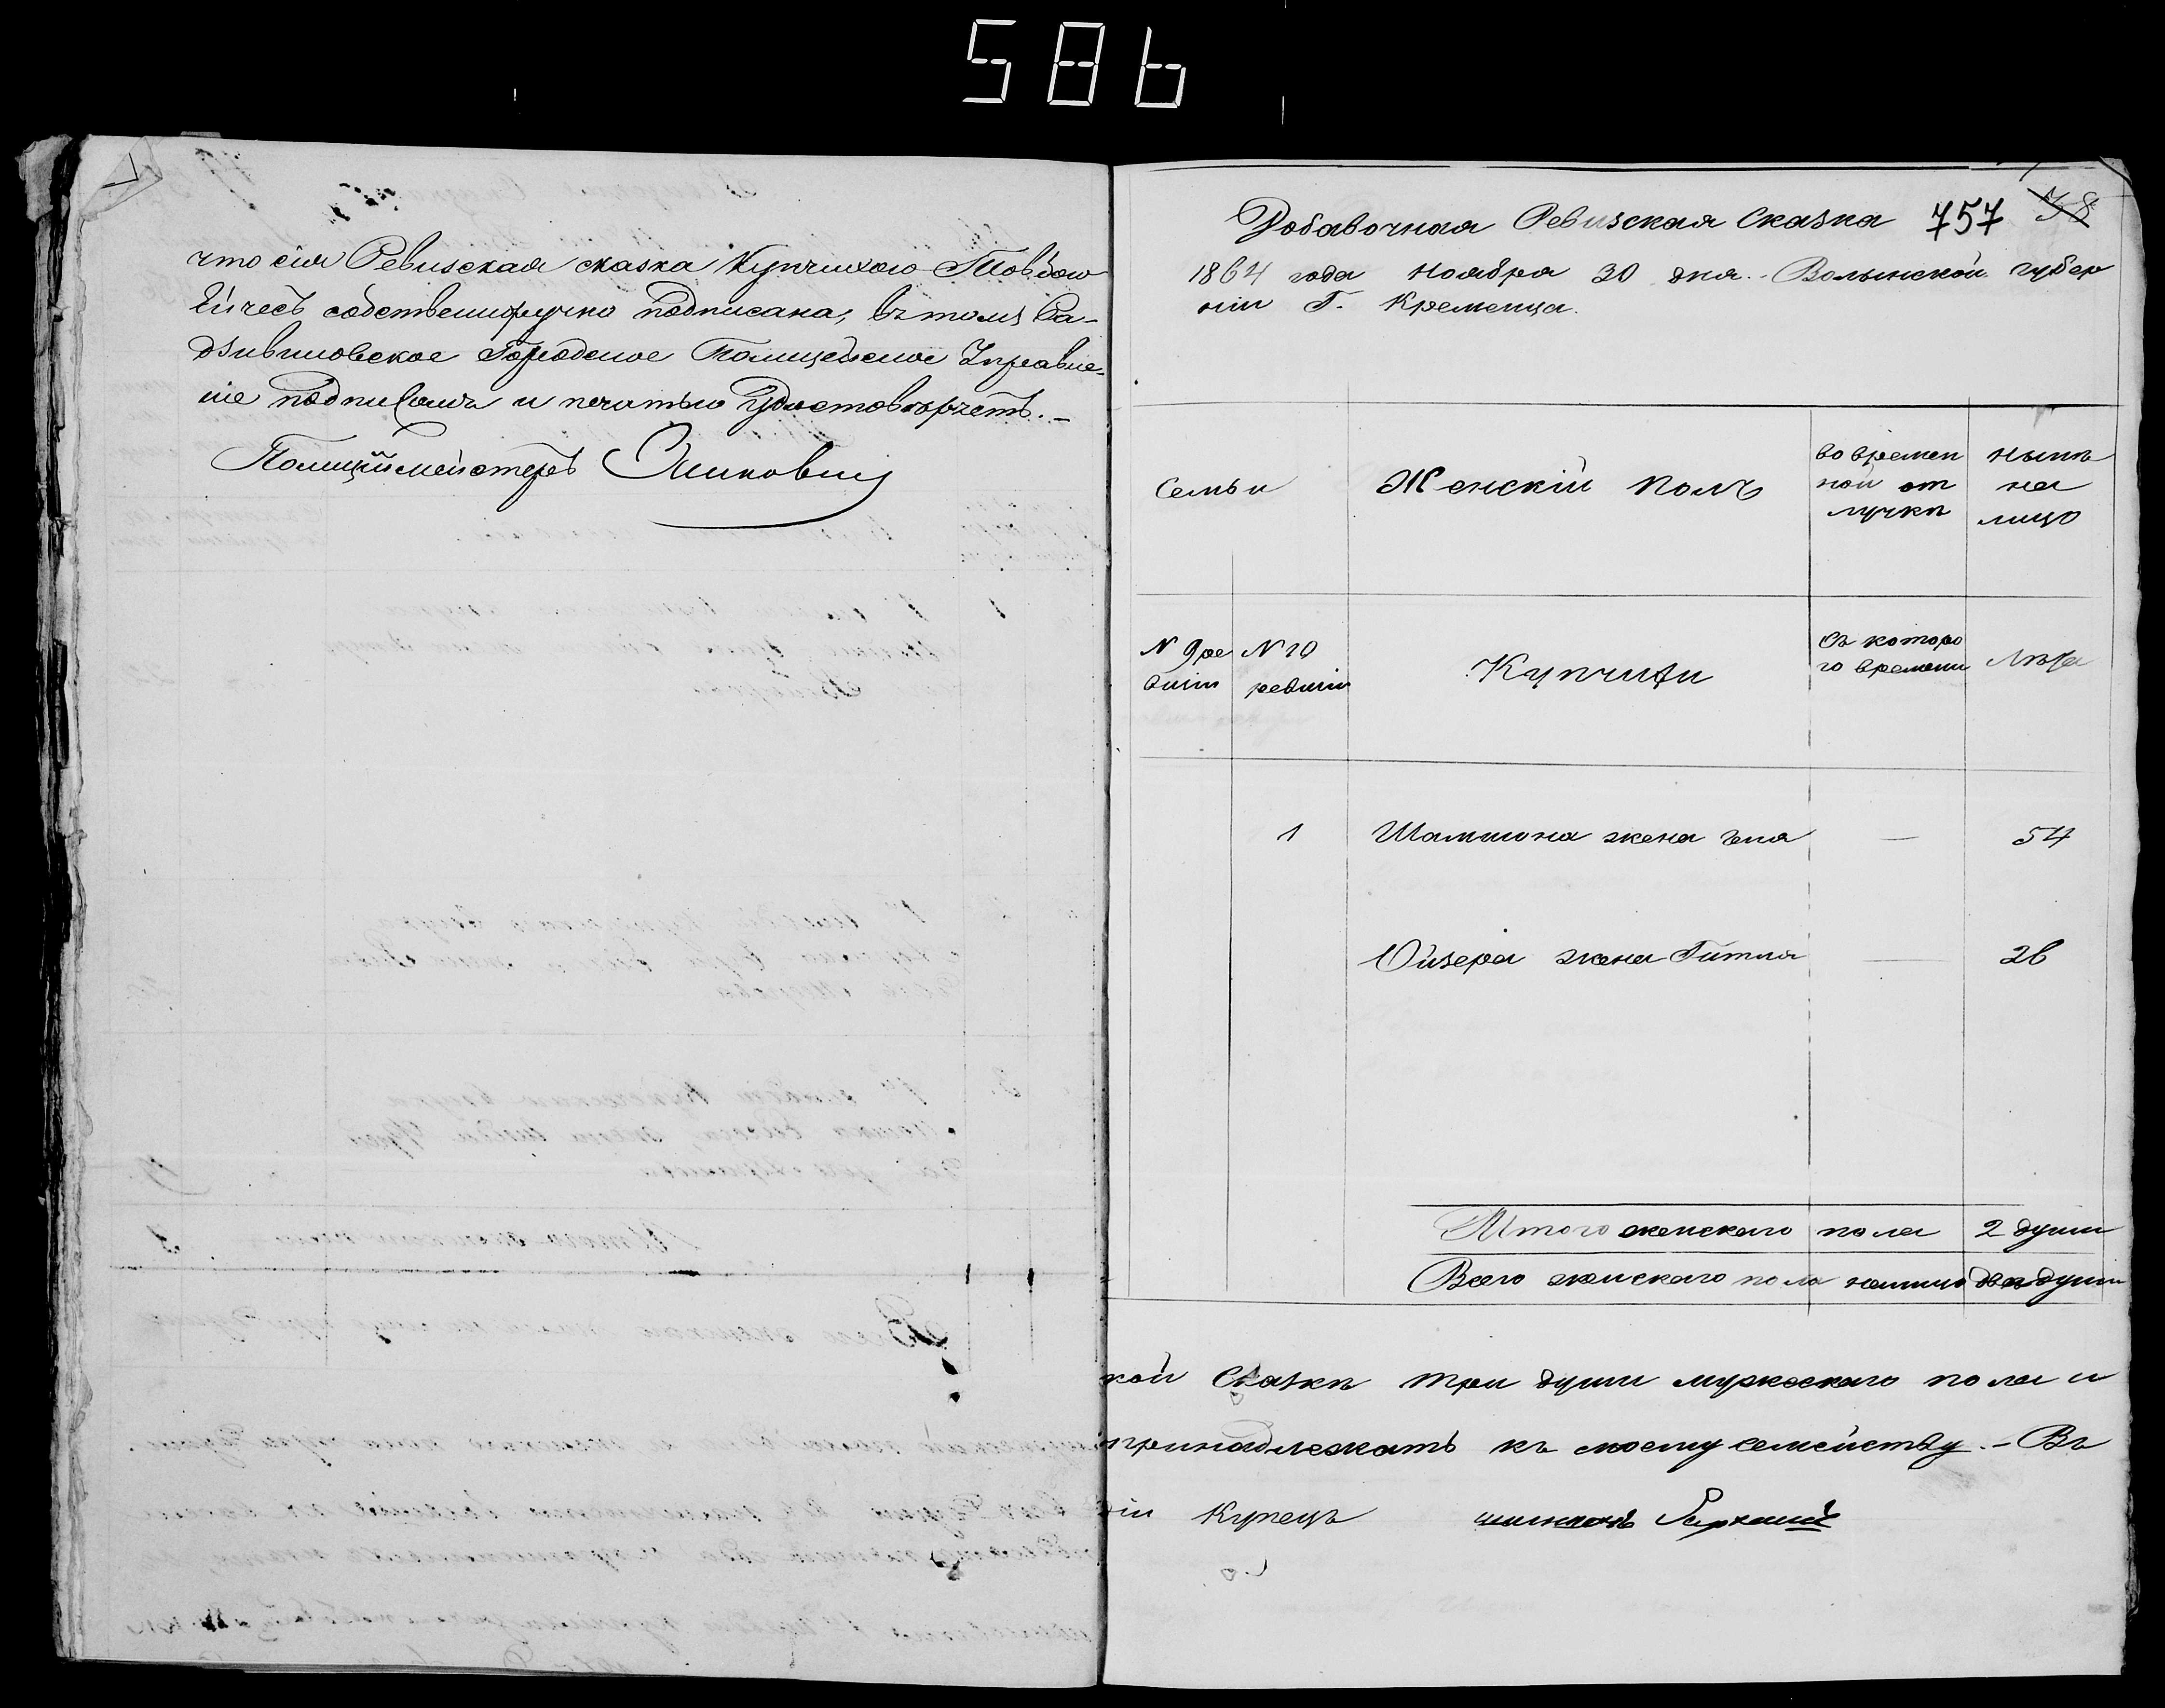 586
что сія Ревизская сказка Купчихою Товбою
Ейчесъ собственноручно подписана, въ томъ Ра-
дзивиловское Городское Полицейское Управле-
ніе подписомъ и печатью удостовѣряетъ. –
Полицiймейстеръ
Добавочная Ревизская Сказка 757 58
1864 года Ноября 30 дня. Волынской губер
ніи Г. Кременца.
Семьи
Женскій Полъ
во времен
ной от
лучкѣ
нынѣ
на
лицо
N 9 ре
визіи
N 10
ревизіи
Купчихи
Съ которо
го времени
Лѣта
1 Шамшона жена — 54
Ойзера жена Гитля — 26
Итого женского пола 2 души
Всего женскаго пола налицо двѣ души
кой Сказкѣ три души мужескаго пола и
принадлежатъ къ моему семейству. – Въ
діи Купецъ